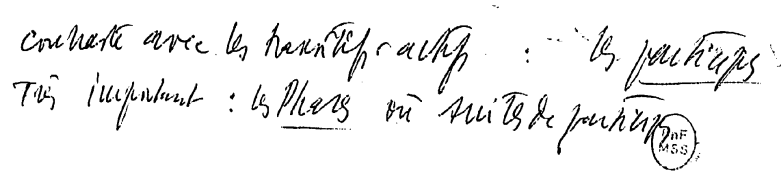 contraste avec les transitifs-actifs : les participes
Très important : les Phases où suites de participes
BnF
MSS